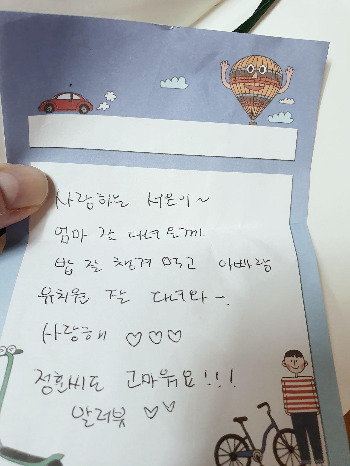 사랑하는 서은이~
엄마 잘 다녀올께
밥 잘 챙겨 먹고 아빠랑
유치원 잘 다녀와~.
사랑해 ♡♡♡
정환씨도 고마워요!!!
알러뷰 ♡♡